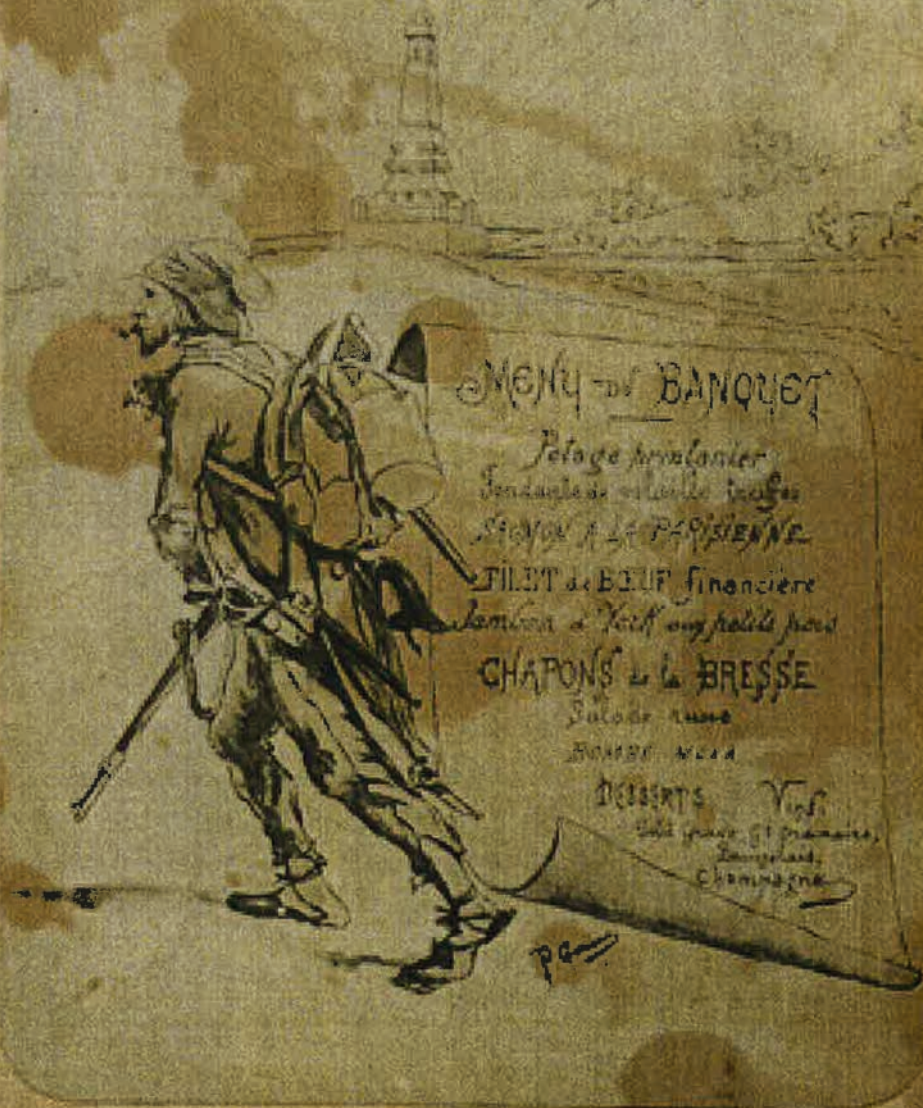 MENU DU BANQUET
Potage printanier
de volaille truffée
SAUMON A LA PARISIENNE
FILET de BŒUF financière
Jambon d'York aux petits pois
CHAPONS de la BRESSE
Salade russe
BOMBE
DESSERTS Vins
ordinaire,
Beaujolais,
Champagne